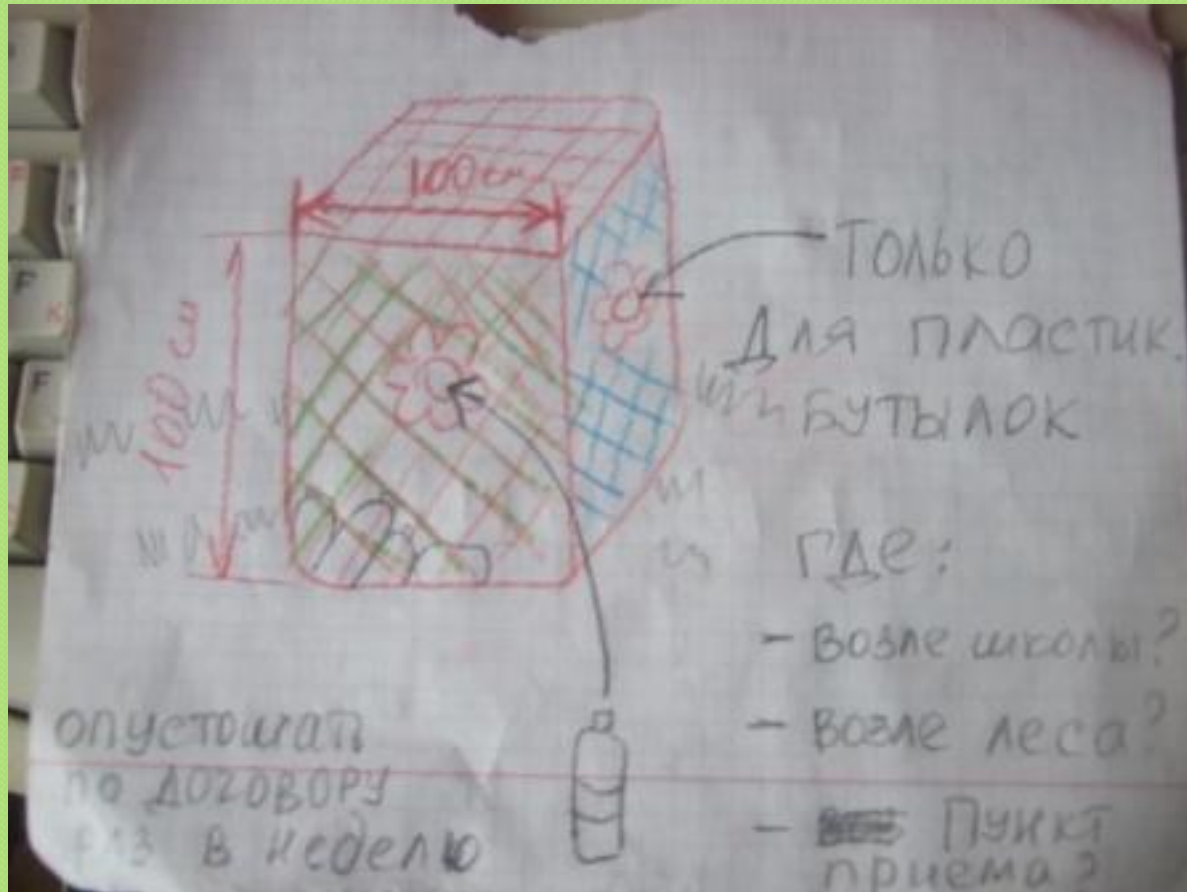 100 см
100 см
Только
Для пластик.
бутылок
Где:
- возле школы?
- возле леса?
- Пункт
приема?
опустошат
по договору
раз в неделю